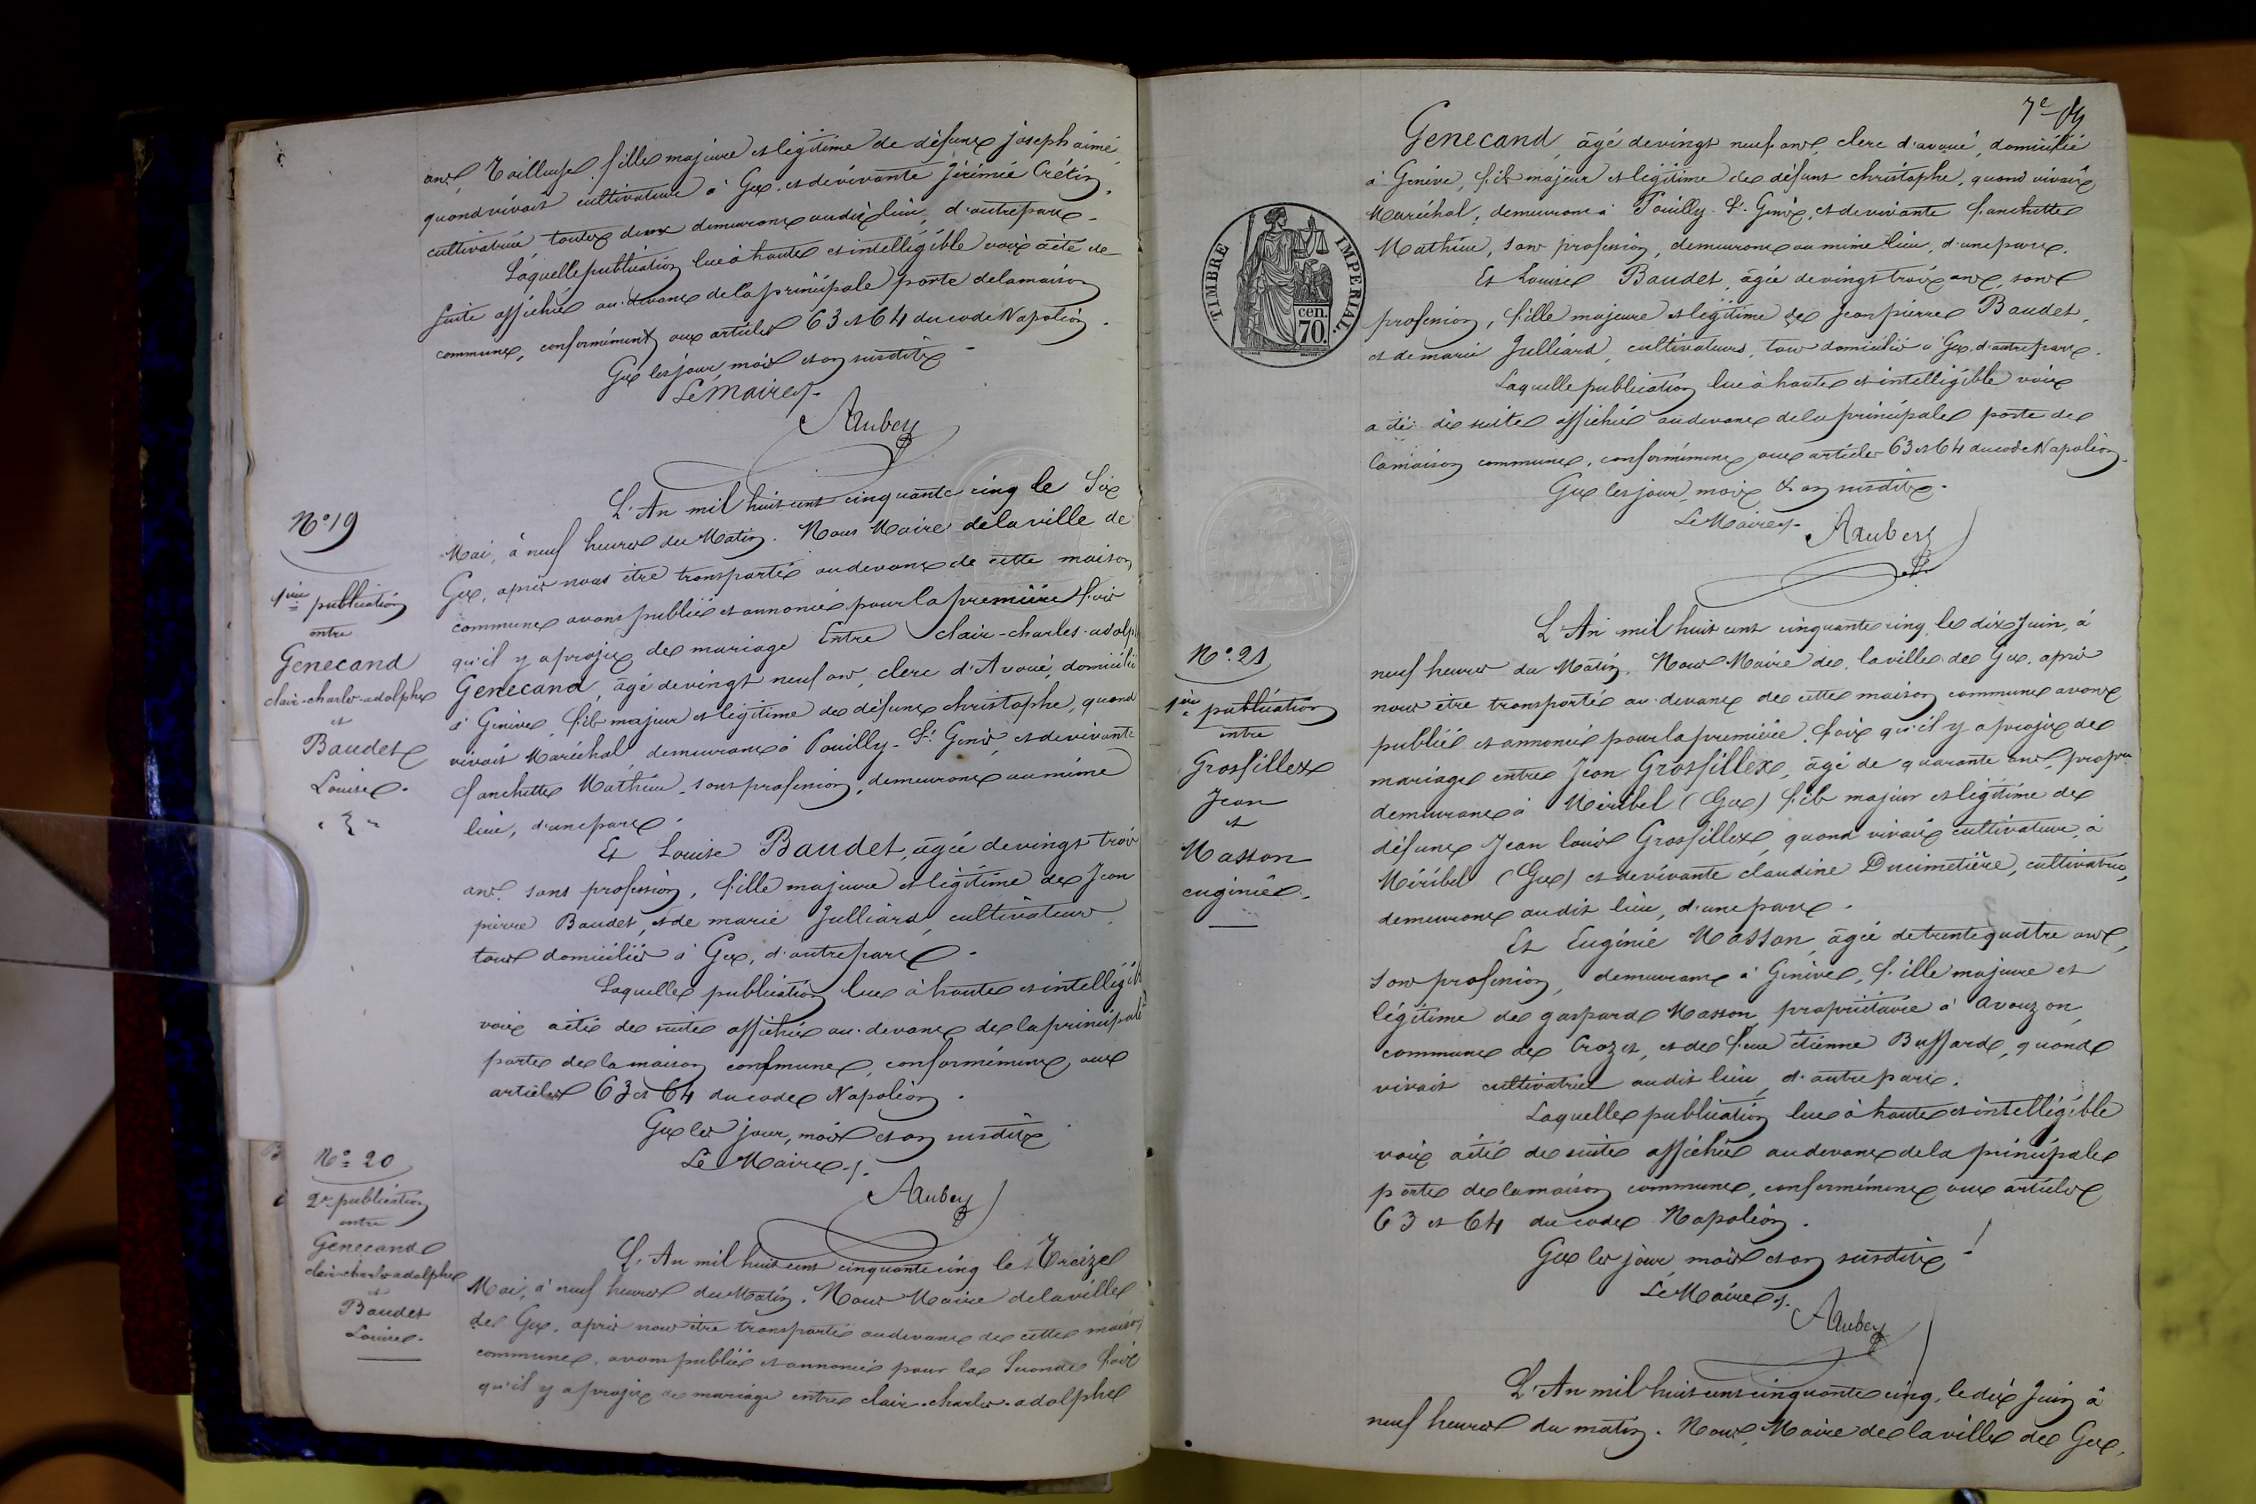 ans, Tailleuse, fille majeure et légitime de défunt joseph aimé,
quand vivait cultivateur à Gex, et de vivante Jérémie Crétin,
cultivatrice toutes deux demeurant audit lieu, d'autre part.
Laquelle publication lue à haute et intelligible voix a été de
suite affichée au-devant de la principale porte de la maison
commune, conformément aux articles 63 et 64 du code Napoléon.
Gex les jour, mois et an susdits
Le Maire
Aubery
N° 19
1ère publication
entre
Genecand
clair-charles-adolphe
et
Baudet
Louise.
L'An mil huit cent cinquante cinq le Six
Mai, à neuf heures du Matin. Nous Maire de la ville de
Gex, après nous être transporté au devant de cette maison
commune avons publié et annoncé pour la première fois
qu'il y a projet de mariage Entre clair-charles-adolph
Genecand, âgé de vingt neuf ans, clerc d'Avoué, domicilié
à Genève, fils majeur et légitime de défunt christophe, quand
vivait Maréchal, demeurant à Pouilly-St. Genis, et de vivante
fanchette Mathieu, sans profession, demeurant au même
lieu, d'une part.
Et Louise Baudet, âgée de vingt trois
ans, sans profession, fille majeure et légitime de Jean
pierre Baudet, et de marie Julliard, cultivateurs,
tous domiciliés à Gex, d'autre part.
Laquelle publication lue à haute et intelligib
voix a été de suite affichée au-devant de la principale
porte de la maison commune, conformément aux
articles 63 et 64 du code Napoléon.
Gex les jour, mois et an susdits
Le Maire
Aubery
N° 20
2e publication
entre
Genecand
clair-charles-adolphe
et
Baudet
Louise.
L'An mil huit cent cinquante cinq le Treize
Mai, à neuf heures du Matin. Nous Maire de la ville
de Gex, après nous être transporté au devant de cette maison
commune, avons publié et annoncé pour la Seconde fois
qu'il y a projet de mariage entre clair-charles-adolphe
7e
Genecand, âgé de vingt neuf ans, clerc d'avoué, domicilié
à Genève, fils majeur et légitime de défunt christophe, quand vivait
Maréchal, demeurant à Pouilly-St. Genix, et de vivante fanchette
Mathieu, sans profession, demeurant au même lieu, d'une part.
Et Louise Baudet, âgée de vingt trois ans, sans
profession, fille majeure et légitime de Jean pierre Baudet,
et de marie Julliard, cultivateurs, tous domiciliés à Gex, d'autre part.
Laquelle publication lue à haute et intelligible voix
a été de suite affichée au devant de la principale porte de
la maison commune, conformément aux articles 63 et 64 du code Napoléon.
Gex les jour, mois & an susdits.
Le Maire
Aubery
TIMBRE IMPERIAL.
cen.
70.
N° 21
1ère publication
entre
Grosfillex
Jean
et
Masson
eugénie.
L'An mil huit cent cinquante cinq le dix Juin, à
neuf heures du Matin. Nous Maire de la ville de Gex, après
nous être transporté au-devant de cette maison commune avons
publié et annoncé pour la première fois qu'il y a projet de
mariage entre Jean Grosfillex, âgé de quarante ans, propre
demeurant à Miribel (Gex) fils majeur et légitime de
défunt Jean louis Grosfillex, quand vivait cultivateur, à
Miribel (Gex) et de vivante claudine Ducimetière, cultivatrice,
demeurant audit lieu, d'une part.
Et Eugénie Masson, âgée de trente quatre ans,
sans profession, demeurant à Genève, fille majeure et
légitime de gaspard Masson, propriétaire à Avouzon,
commune de Crozet, et de feue étienne Buffard, quand
vivait cultivatrice audit lieu, d'autre part.
Laquelle publication lue à haute et intelligible
voix a été de suite affichée au devant de la principale
porte de la maison commune, conformément aux articles
63 et 64 du code Napoléon.
Gex les jour, mois et an susdits
Le Maire
Aubery
L'An mil huit cent cinquante cinq, le dix Juin à
neuf heures du matin. Nous, Maire de la ville de Gex,